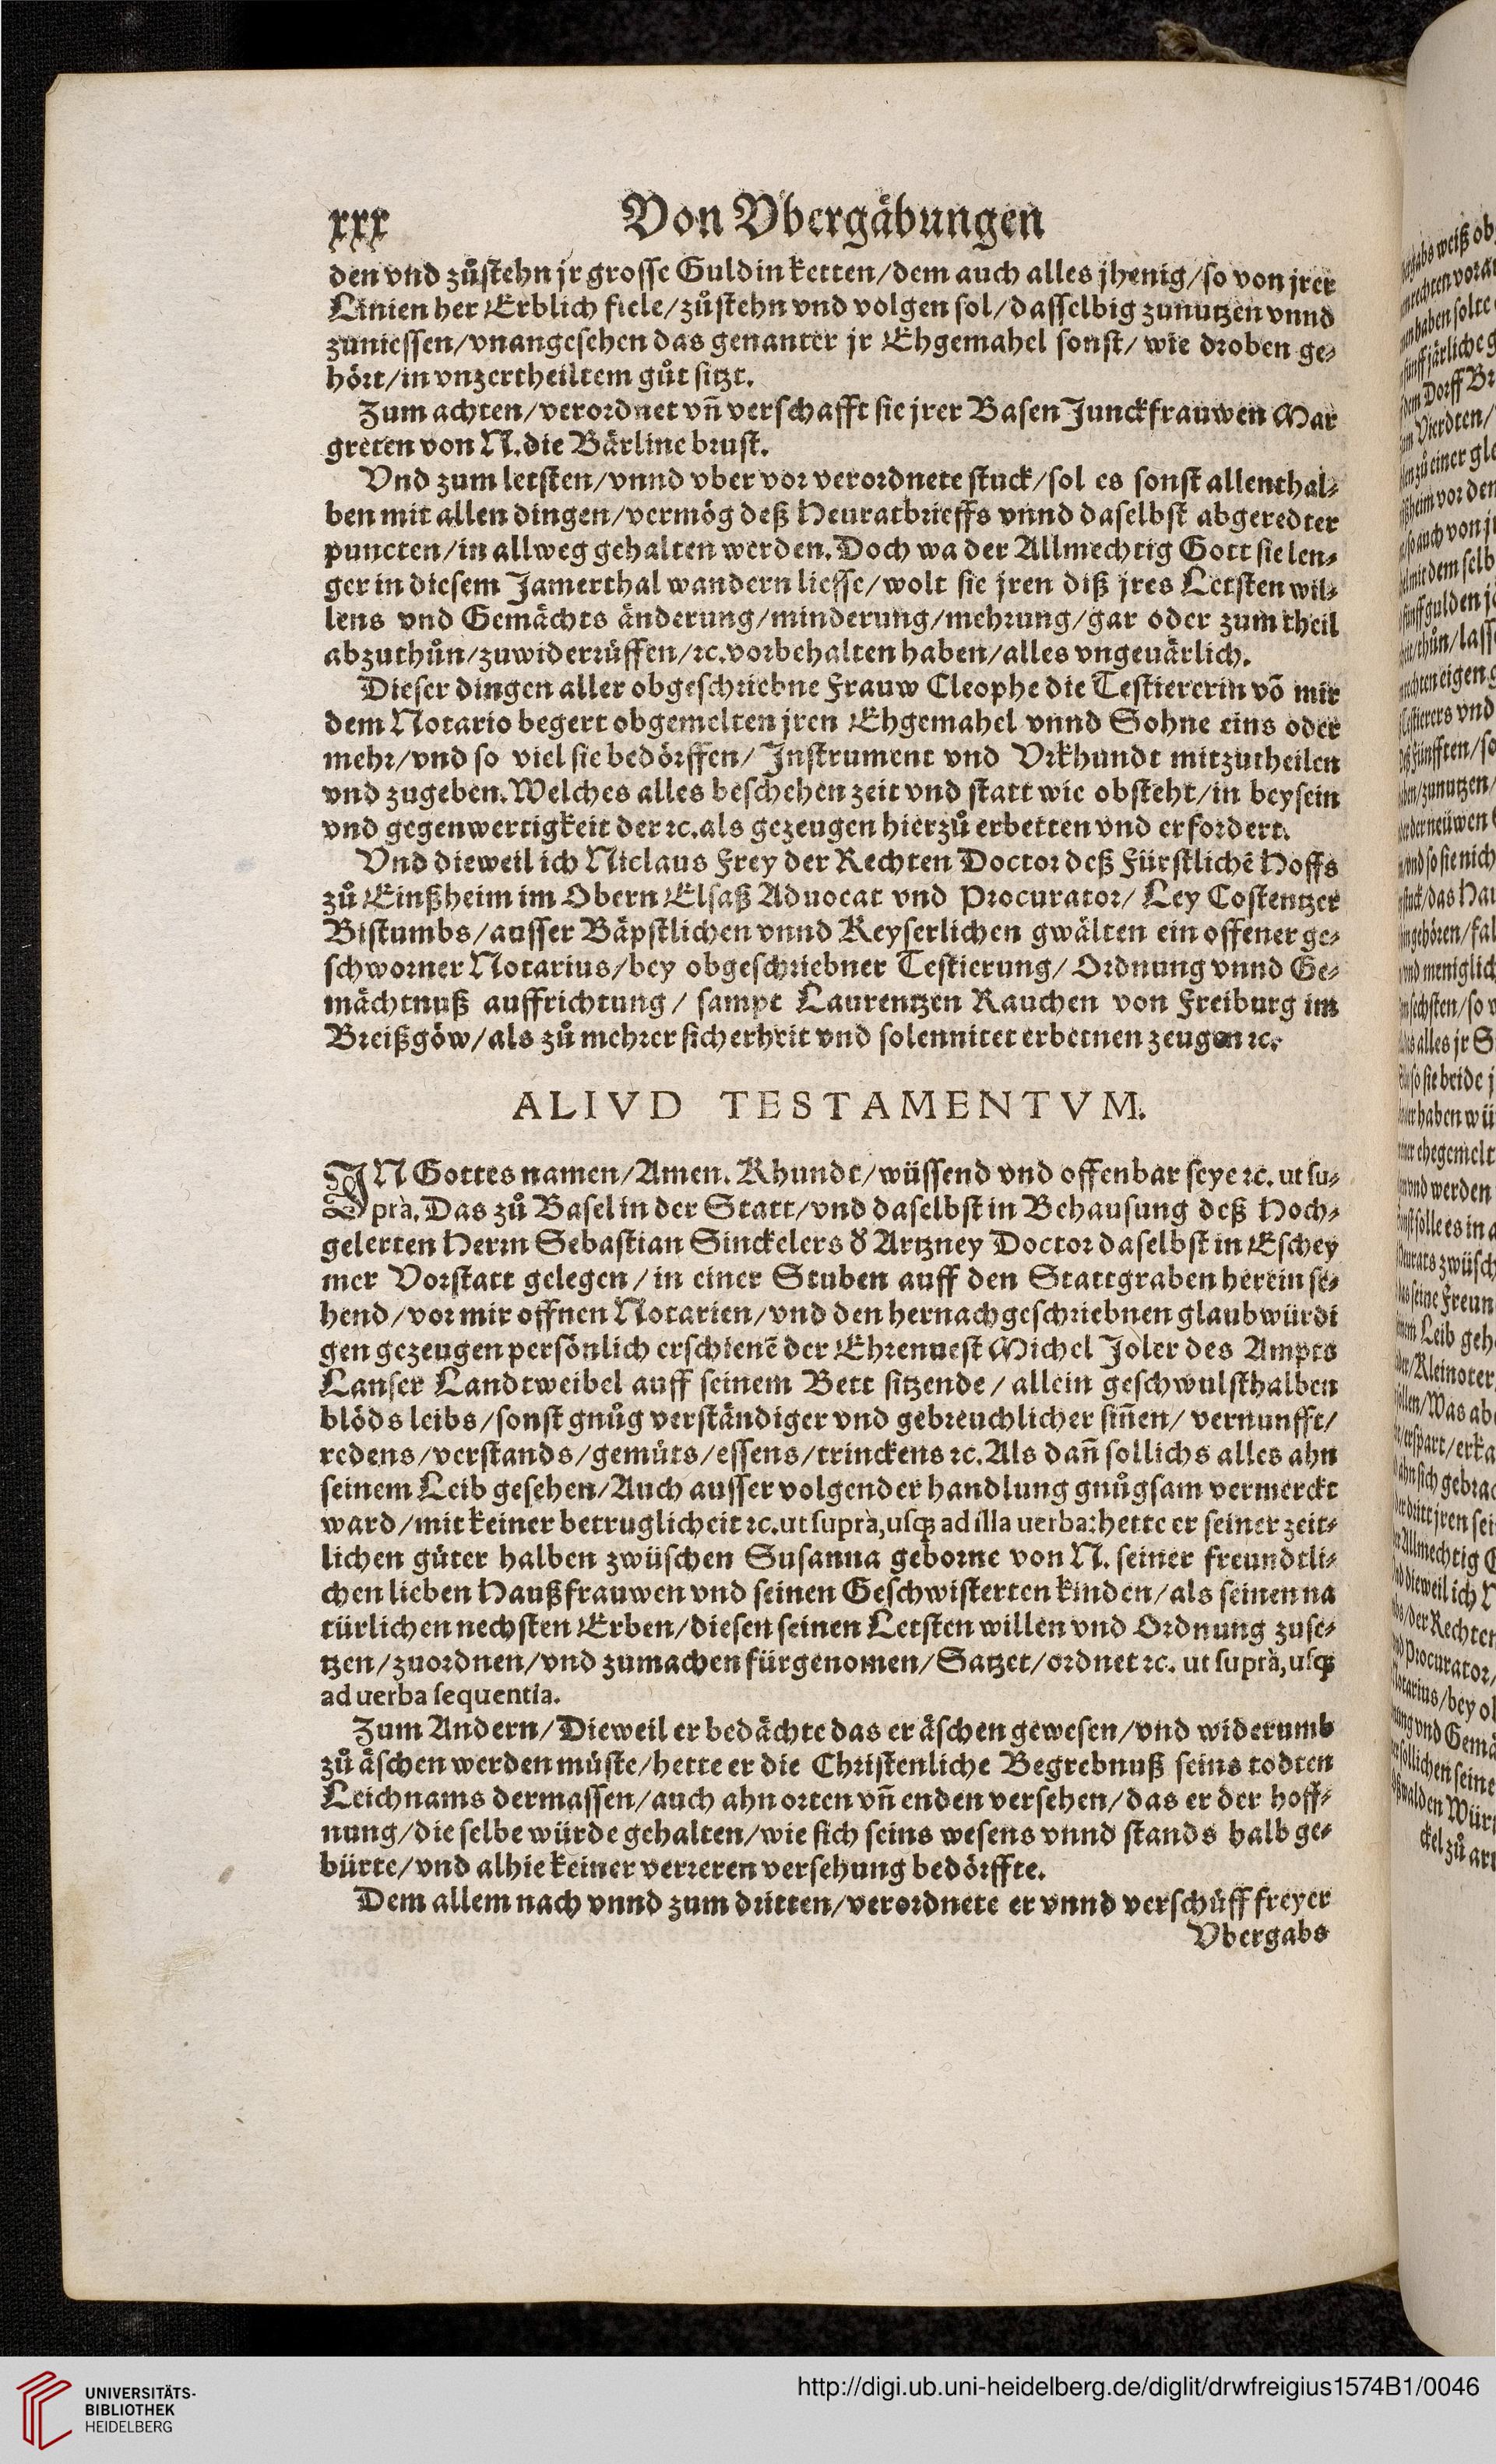 xxx Von Vbergäbungen
den vnd zůstehn jr grosse Guldin ketten/dem auch alles jhenig/so von jrer
Linien her Erblich fiele/zůstehn vnd volgen sol/dasselbig zunutzen vnnd
zuniessen/vnangesehen das genanter jr Ehgemahel sonst/wie droben ge⸗
hört/in vnzertheiltem gůt sitzt.
Zum achten/verordnet vn̄ verschafft sie jrer Basen Junckfrauwen Mar
greten von N. die Bärline brust.
Vnd zum letsten/vnnd vber vor verordnete stuck/sol es sonst allenthal⸗
ben mit allen dingen/vermög deß Heuratbrieffs vnnd daselbst abgeredter
puncten/in allweg gehalten werden. Doch wa der Allmechtig Gott sie len⸗
ger in diesem Jamerthal wandern liesse/wolt sie jren diß jres Letsten wil⸗
lens vnd Gemächts änderung/minderung/mehrung/gar oder zum theil
abzuthůn/zuwiderrüffen/ꝛc. vorbehalten haben/alles vngeuärlich.
Dieser dingen aller obgeschriebne Frauw Cleophe die Testiererin võ mir
dem Notario begert obgemelten jren Ehgemahel vnnd Sohne eins oder
mehr/vnd so viel sie bedörffen/Instrument vnd Vrkhundt mitzutheilen
vnd zugeben. Welches alles beschehen zeit vnd statt wie obsteht/in beysein
vnd gegenwertigkeit der ꝛc. als gezeugen hierzů erbetten vnd erfordert.
Vnd dieweil ich Niclaus Frey der Rechten Doctor deß Fürstlichē Hoffs
zů Einßheim im Obern Elsaß Aduocat vnd Procurator/Ley Costentzer
Bistumbs/ausser Bäpstlichen vnnd Keyserlichen gwälten ein offener ge⸗
schworner Notarius/bey obgeschriebner Testierung/Ordnung vnnd Ge⸗
mächtnuß auffrichtung/sampt Laurentzen Rauchen von Freiburg im
Breißgöw/als zů mehrer sicherheit vnd solennitet erbetnen zeugen ꝛc.
ALIVD TESTAMENTVM.
IN Gottes namen/Amen. Khundt/wüssend vnd offenbar seye ꝛc. ut su⸗
prà. Das zů Basel in der Statt/vnd daselbst in Behausung deß Hoch⸗
gelerten Herrn Sebastian Sinckelers d̕ Artzney Doctor daselbst in Eschey
mer Vorstatt gelegen/in einer Stuben auff den Stattgraben herein se⸗
hend/vor mir offnen Notarien/vnd den hernachgeschriebnen glaubwürdi
gen gezeugen persönlich erschienē der Ehrenuest Michel Joler des Ampts
Lanser Landtweibel auff seinem Bett sitzende/allein geschwulsthalben
blöds leibs/sonst gnůg verständiger vnd gebreuchlicher siñen/vernunfft/
redens/verstands/gemüts/essens/trinckens ꝛc. Als dañ sollichs alles ahn
seinem Leib gesehen/Auch ausser volgender handlung gnůgsam vermerckt
ward/mit keiner betruglicheit ꝛc. ut suprà, usq́ꝫ ad illa uerba: hette er seiner zeit⸗
lichen güter halben zwüschen Susanna geborne von N. seiner freundtli⸗
chen lieben Haußfrauwen vnd seinen Geschwisterten kinden/als seinen na
türlichen nechsten Erben/diesen seinen Letsten willen vnd Ordnung zuse⸗
tzen/zuordnen/vnd zumachen fürgenomen/Satzet/ordnet ꝛc. ut suprà, usq́ꝫ
ad uerba sequentia.
Zum Andern/Dieweil er bedächte das er äschen gewesen/vnd widerumb
zů äschen werden müste/hette er die Christenliche Begrebnuß seins todten
Leichnams dermassen/auch ahn orten vn̄ enden versehen/das er der hoff⸗
nung/die selbe würde gehalten/wie sich seins wesens vnnd stands halb ge⸗
bürte/vnd alhie keiner verreren versehung bedörffte.
Dem allem nach vnnd zum dritten/verordnete er vnnd verschüff freyer
Vbergabs
UNIVERSITÄTS-
BIBLIOTHEK
HEIDELBERG
http://digi.ub.uni-heidelberg.de/diglit/drwfreigius1574B1/0046